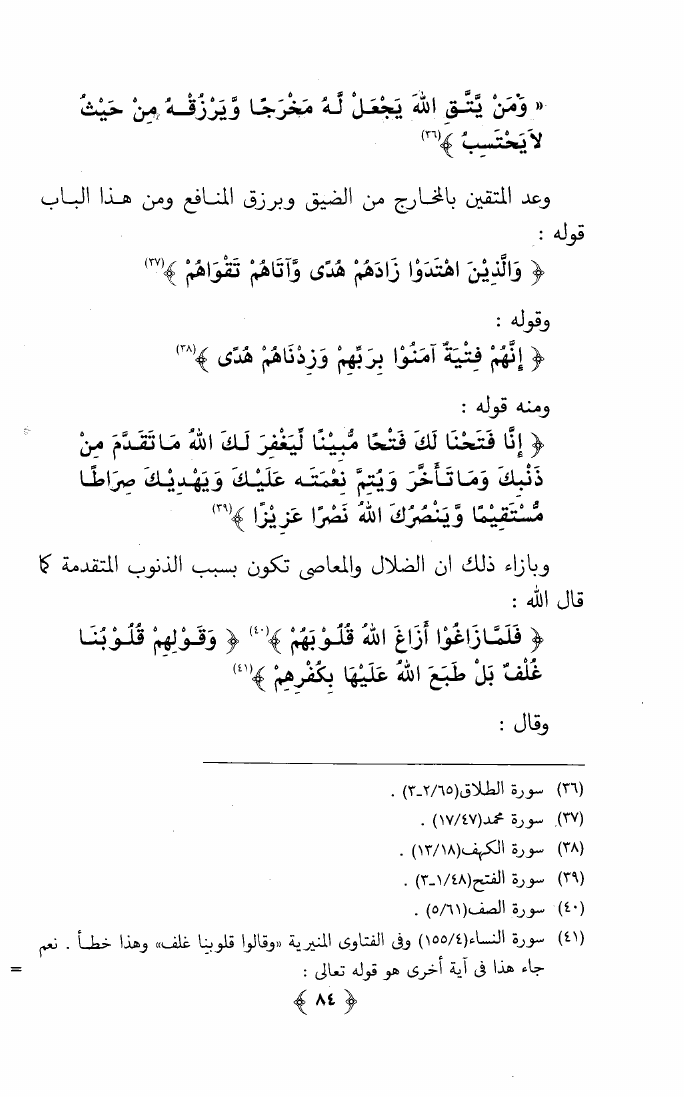 « وَمَنْ يَّتَّقِ اللهَ يَجْعَلْ لَّهُ مَخْرَجًا وَّيَرْزُقْهُ مِنْ حَيْثُ
لاَيَحْتَسِبُ ﴾(٣٦)
وعد المتقين بالمخارج من الضيق وبرزق المنافع ومن هذا الباب
قوله :
﴿ وَالَّذِيْنَ اهْتَدَوْا زَادَهُمْ هُدًى وَّآتَاهُمْ تَقْوَاهُمْ ﴾(٣٧)
وقوله :
﴿ إِنَّهُمْ فِتْيَةٌ آمَنُوْا بِرَبِّهِمْ وَزِدْنَاهُمْ هُدًى ﴾(٣٨)
ومنه قوله :
﴿ إِنَّا فَتَحْنَا لَكَ فَتْحًا مُّبِيْنًا لِّيَغْفِرَ لَكَ اللهُ مَاتَقَدَّمَ مِنْ
ذَنْبِكَ وَمَاتَأَخَّرَ وَيُتِمَّ نِعْمَتَه عَلَيْكَ وَيَهْدِيْكَ صِرَاطًا
مُّسْتَقِيْمًا وَّيَنْصُرَكَ اللهُ نَصْرًا عَزِيْزًا ﴾(٣٩)
وبازاء ذلك ان الضلال والمعاصى تكون بسبب الذنوب المتقدمة كما
قال الله :
﴿ فَلَمَّازَاغُوْا أَزَاغَ اللهُ قُلُوْبَهُمْ ﴾(٤٠) ﴿ وَقَوْلِهِمْ قُلُوْبُنَا
غُلْفٌ بَلْ طَبَعَ اللهُ عَلَيْهَا بِكُفْرِهِمْ ﴾(٤١)
وقال :
(٣٦) سورة الطلاق(٢/٦٥ـ٣) .
(٣٧) سورة محمد(١٧/٤٧) .
(٣٨) سورة الكهف(١٣/١٨) .
(٣٩) سورة الفتح(١/٤٨ـ٣) .
(٤٠) سورة الصف(٥/٦١) .
(٤١) سورة النساء(١٥٥/٤) وفى الفتاوى المنيرية «وقالوا قلوبنا غلف» وهذا خطأ . نعم
جاء هذا فى آية أخرى هو قوله تعالى : =
﴿ ٨٤ ﴾